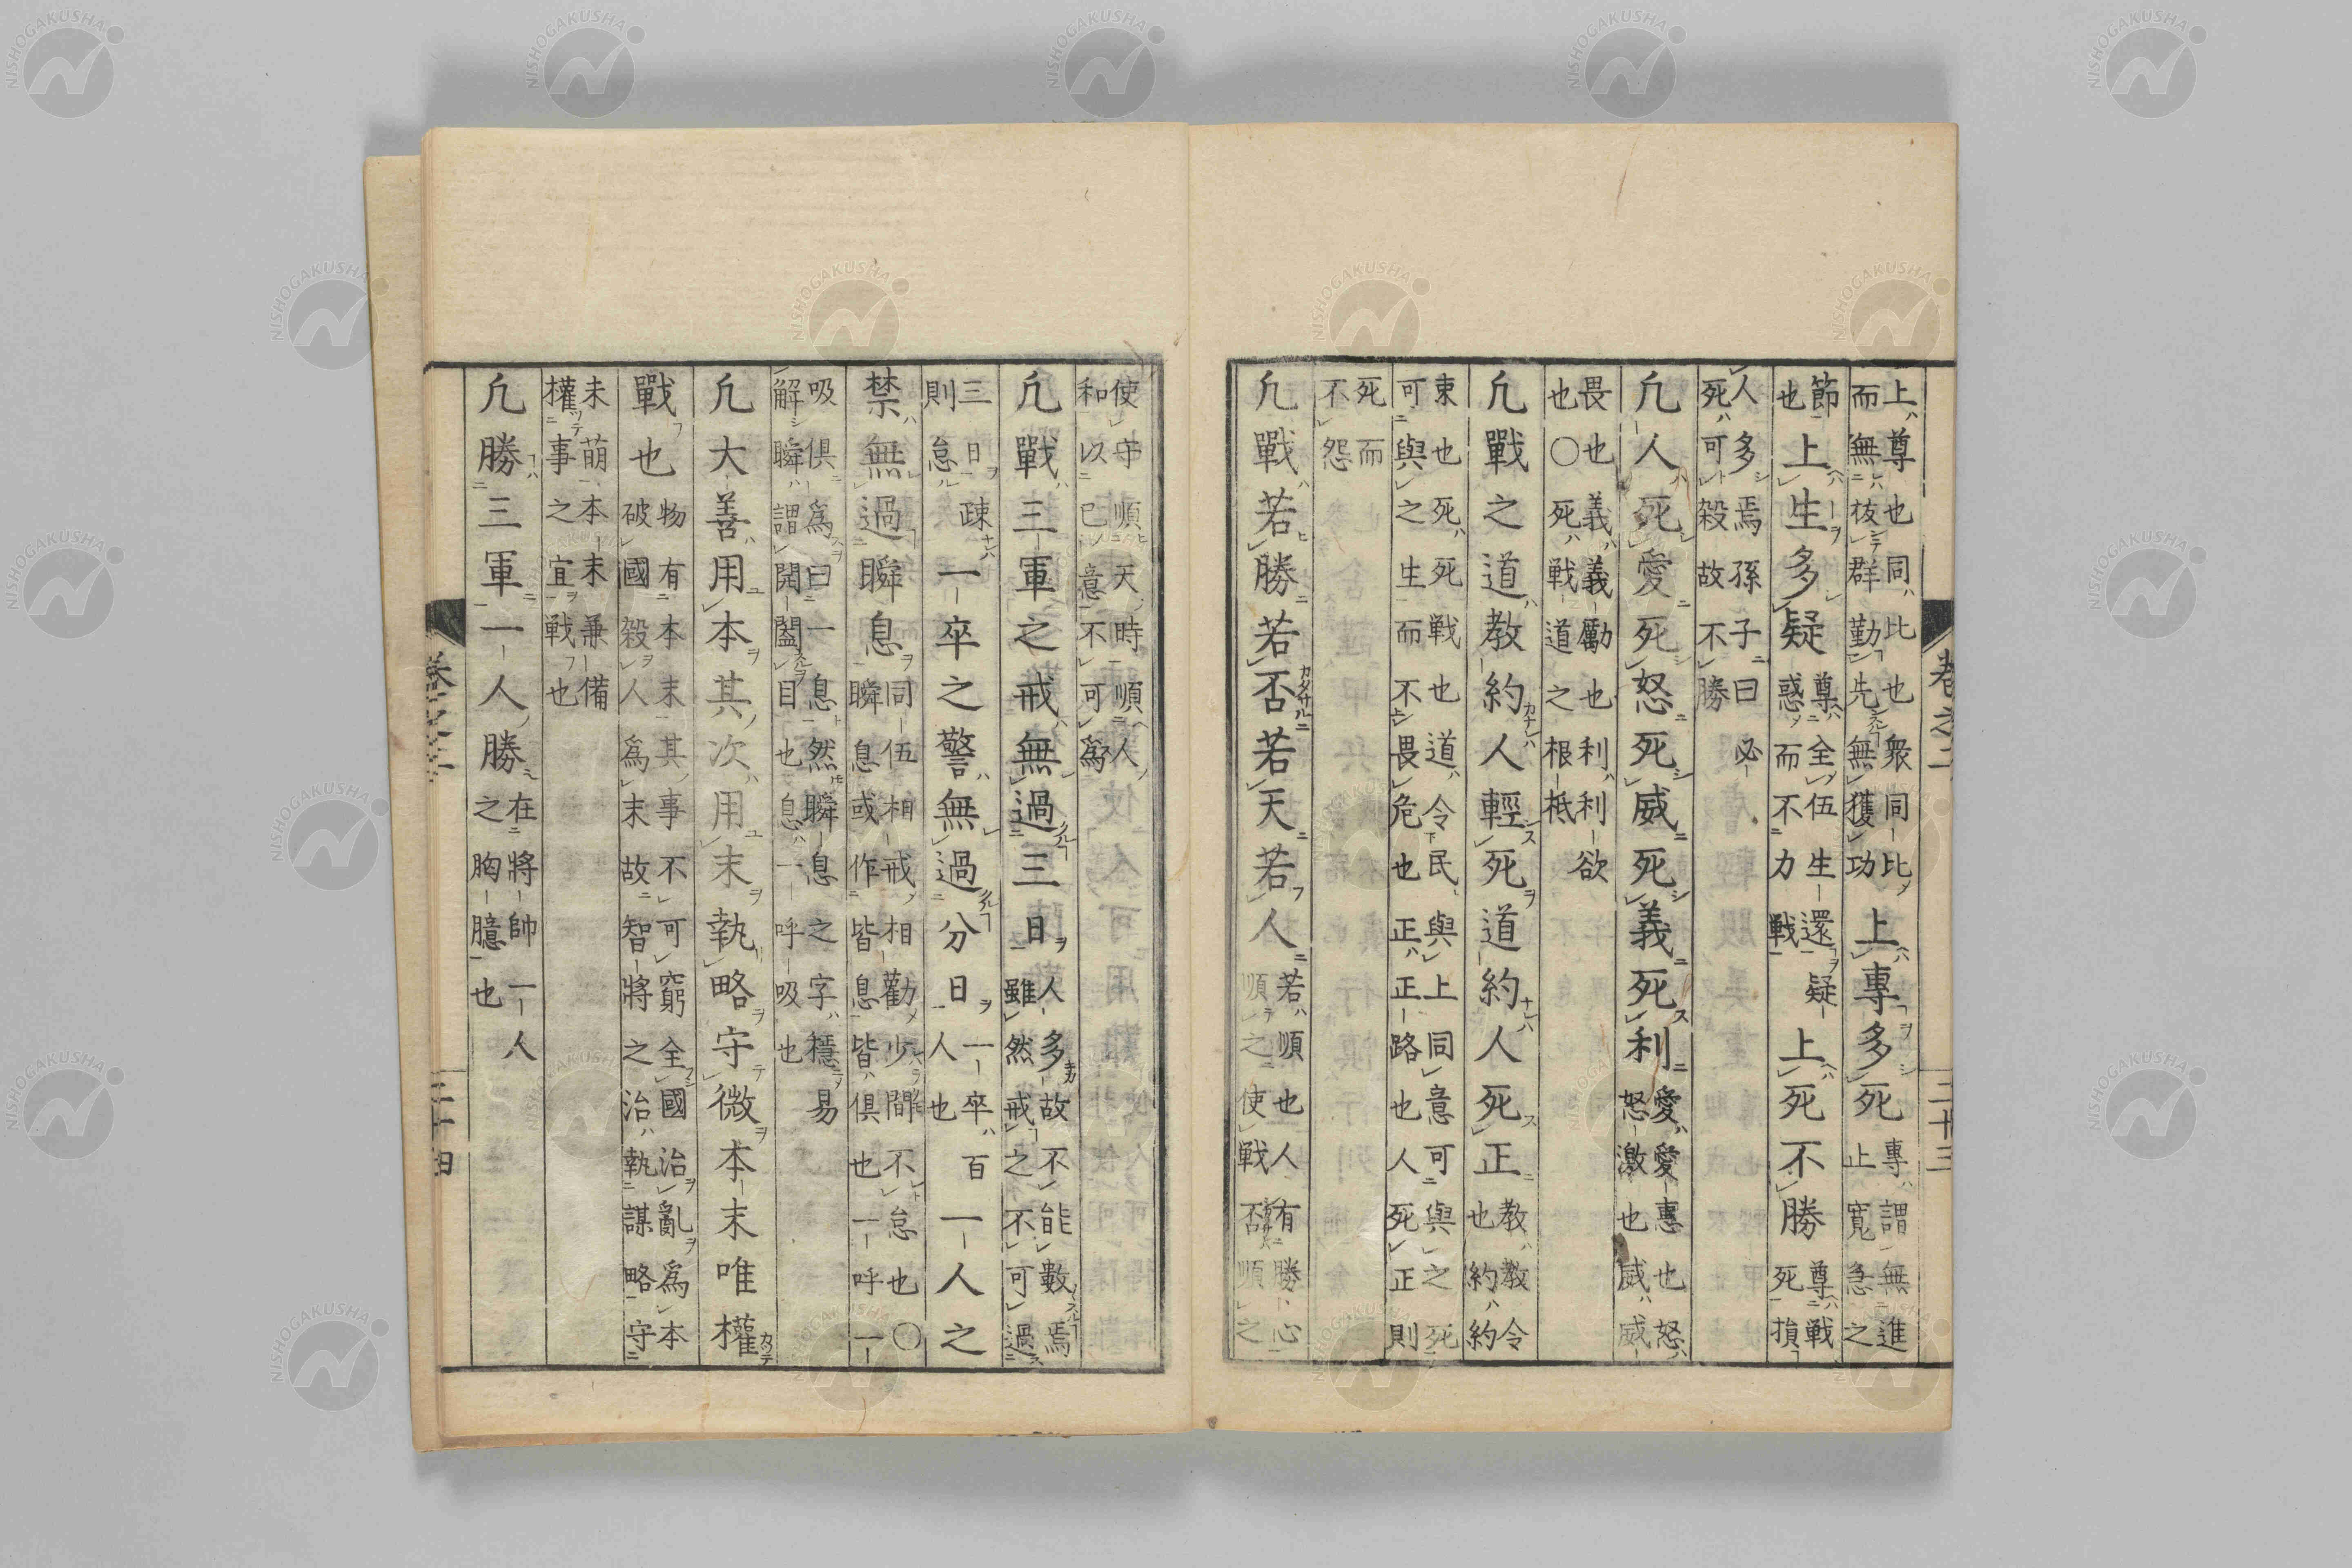 卷之二
二十三
上尊也同比也衆同比
而無核群勤先無獲功
上專多死
專謂無進
止寬急之
節
也
上生多疑
尊全伍生還疑
惑而不力戰
上死不勝
尊戰
死損
人多焉孫子曰必
死可殺故不勝
凢人死愛死怒死威死義死利
愛愛惠也怒
怒激也威威
畏也義義勵也利利欲
也〇死戰道之根柢
凢戰之道教約人輕死道約人死正
教教令
也約約
束也死死戰也道令民與上同意可與之死
可與之生而不畏危也正正路也人死正則
死而
不怨
凢戰若勝若否若天若人
若順也人有勝心
順之使戰否順之
使守順天時順人
和以己意不可爲
凢戰三軍之戒無過三日
人多故不能數焉
雖然戒之不可過
三日疎
則怠
一卒之警無過分日
一卒百
人也
一人之
禁無過瞬息
同伍相戒相勸少間不怠也〇
瞬息或作皆息皆俱也一呼一
吸俱爲曰一息然瞬息之字穩易
解瞬謂開闔目也息一呼一吸也
凢大善用本其次用末執略守微本末唯權
戰也
物有本末其事不可窮全國治亂爲本
破國殺人爲末故智將之治執謀略守
未萌本末兼備
權事之宜戰也
凢勝三軍一人勝
在將帥一人
之胸臆也